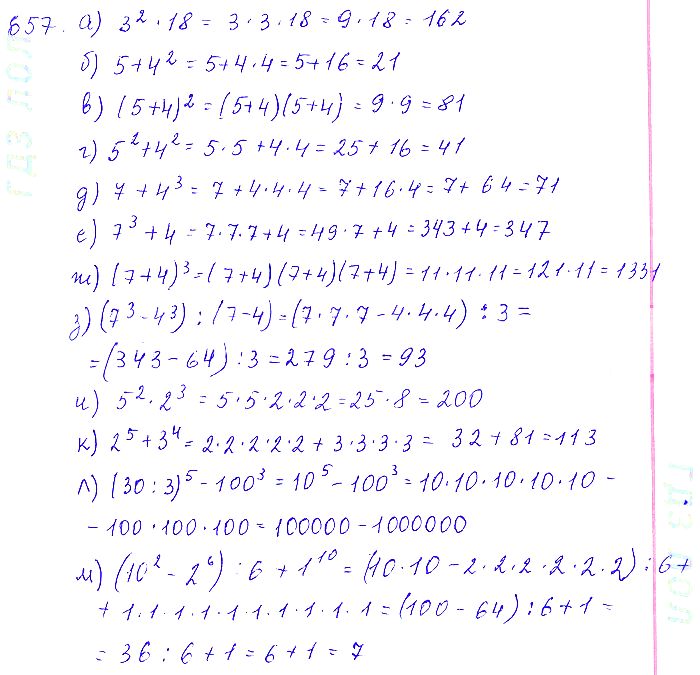 657. а) 3² · 18 = 3 · 3 · 18 = 9 · 18 = 162
б) 5 + 4² = 5 + 4 · 4 = 5 + 16 = 21
в) (5+4)² = (5+4)(5+4) = 9 · 9 = 81
г) 5² + 4² = 5 · 5 + 4 · 4 = 25 + 16 = 41
д) 7 + 4³ = 7 + 4 · 4 · 4 = 7 + 16 · 4 = 7 + 64 = 71
е) 7³ + 4 = 7 · 7 · 7 + 4 = 49 · 7 + 4 = 343 + 4 = 347
ж) (7+4)³ = (7+4)(7+4)(7+4) = 11 · 11 · 11 = 121 · 11 = 1331
з) (7³ - 4³) : (7-4) = (7 · 7 · 7 - 4 · 4 · 4) : 3 =
= (343 - 64) : 3 = 279 : 3 = 93
и) 5² · 2³ = 5 · 5 · 2 · 2 · 2 = 25 · 8 = 200
к) 2⁵ + 3⁴ = 2 · 2 · 2 · 2 · 2 + 3 · 3 · 3 · 3 = 32 + 81 = 113
л) (30 : 3)⁵ - 100³ = 10⁵ - 100³ = 10 · 10 · 10 · 10 · 10 -
- 100 · 100 · 100 = 100000 - 1000000
м) (10² - 2⁶) : 6 + 1¹⁰ = (10 · 10 - 2 · 2 · 2 · 2 · 2 · 2) : 6 +
+ 1 · 1 · 1 · 1 · 1 · 1 · 1 · 1 · 1 · 1 = (100 - 64) : 6 + 1 =
= 36 : 6 + 1 = 6 + 1 = 7
ГДЗ ЛОЛ
ГДЗ ЛОЛ